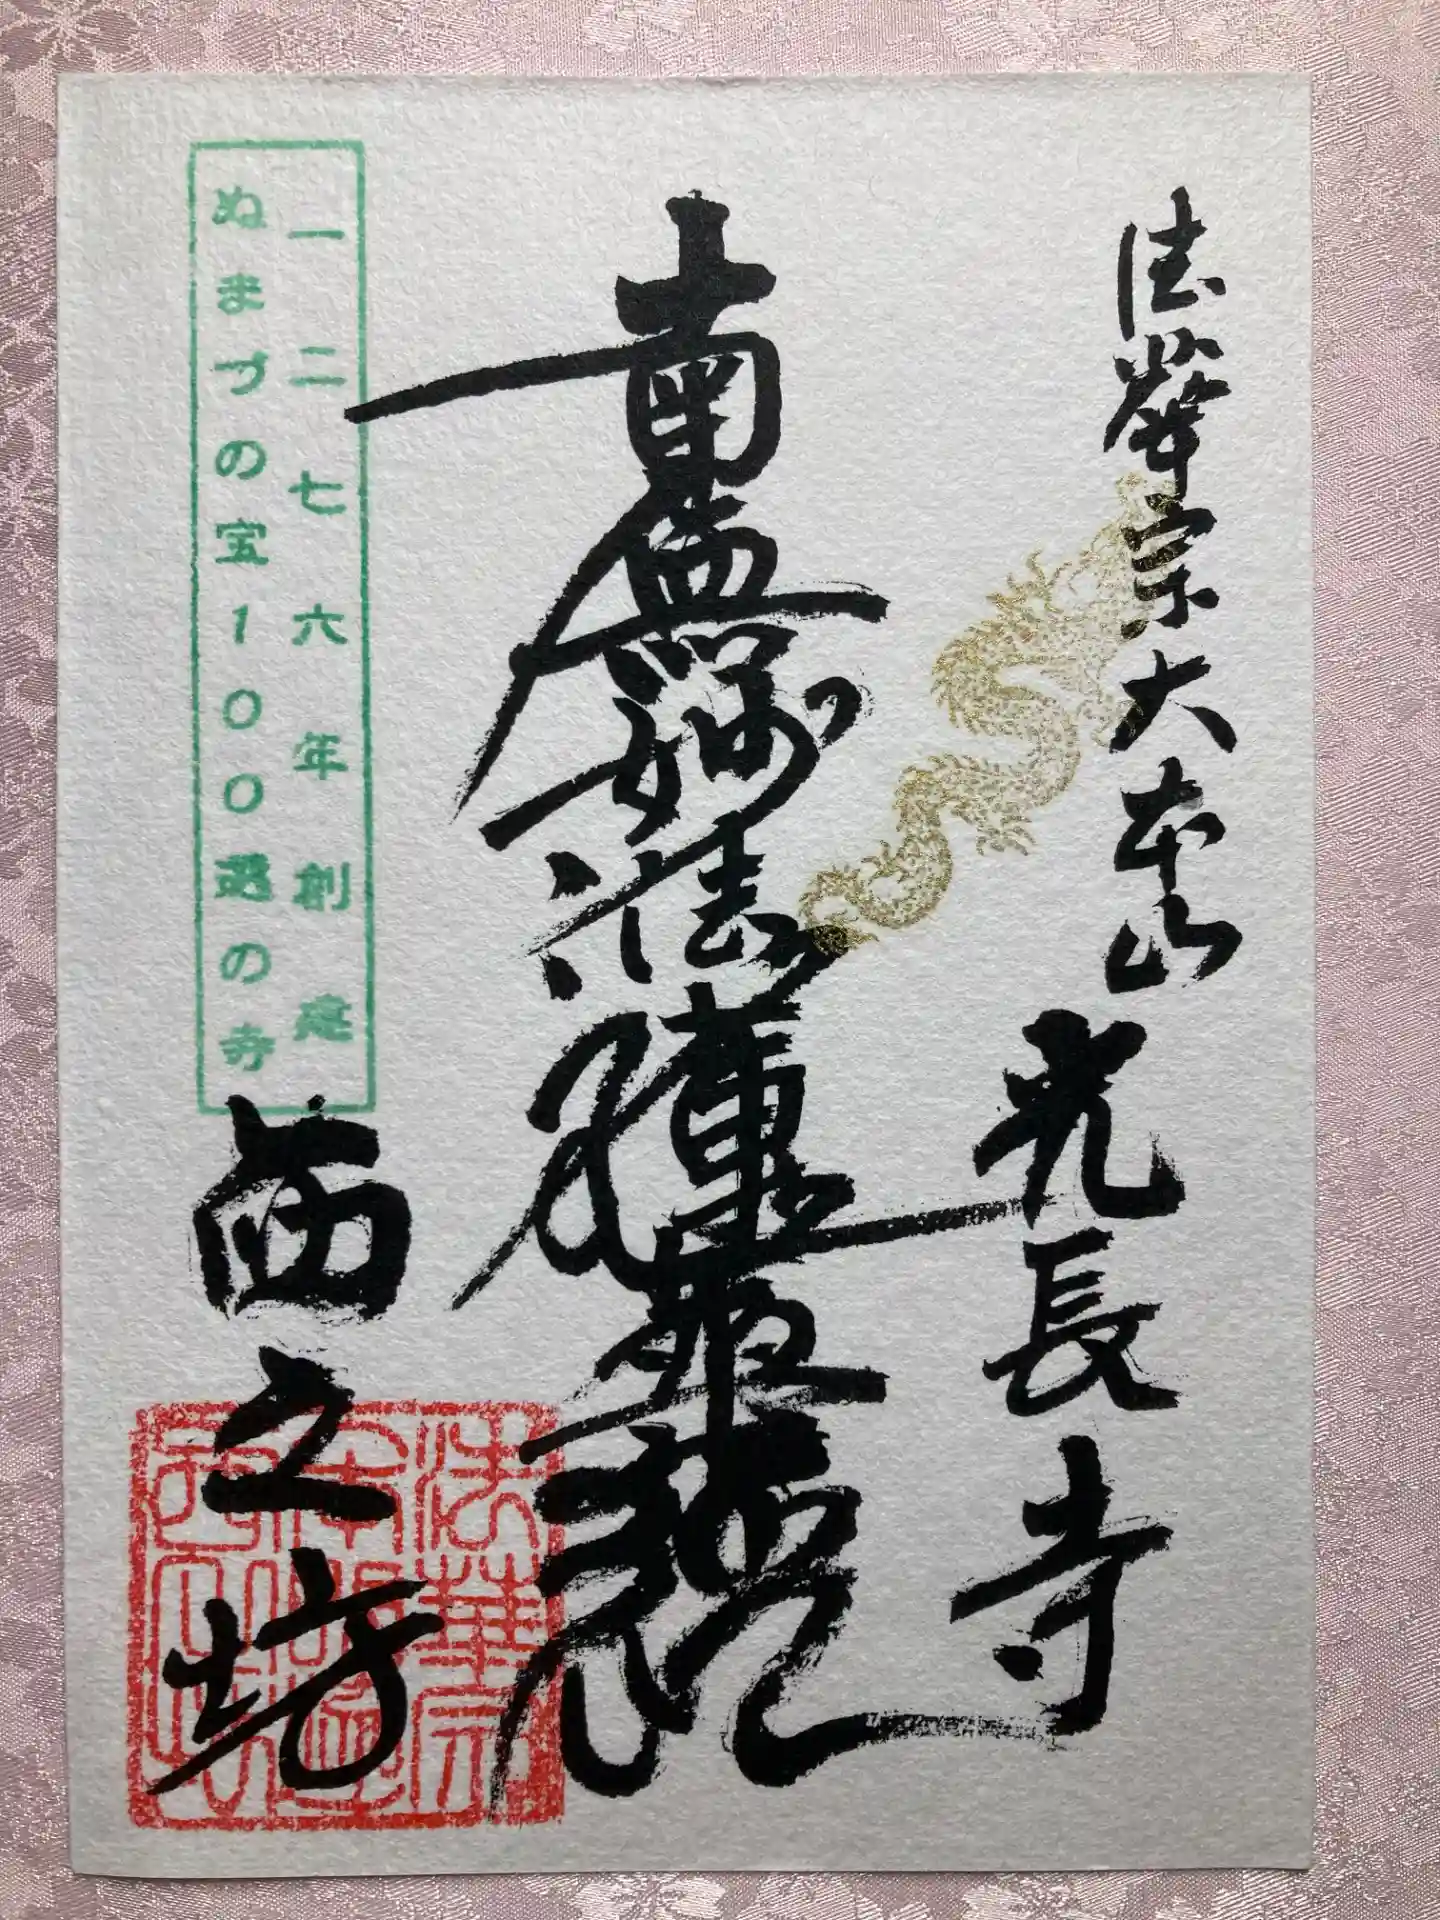 法華宗大本山
光長寺
南無妙法蓮華経
一二七六年創建
ぬまづの宝100選の寺
西之坊